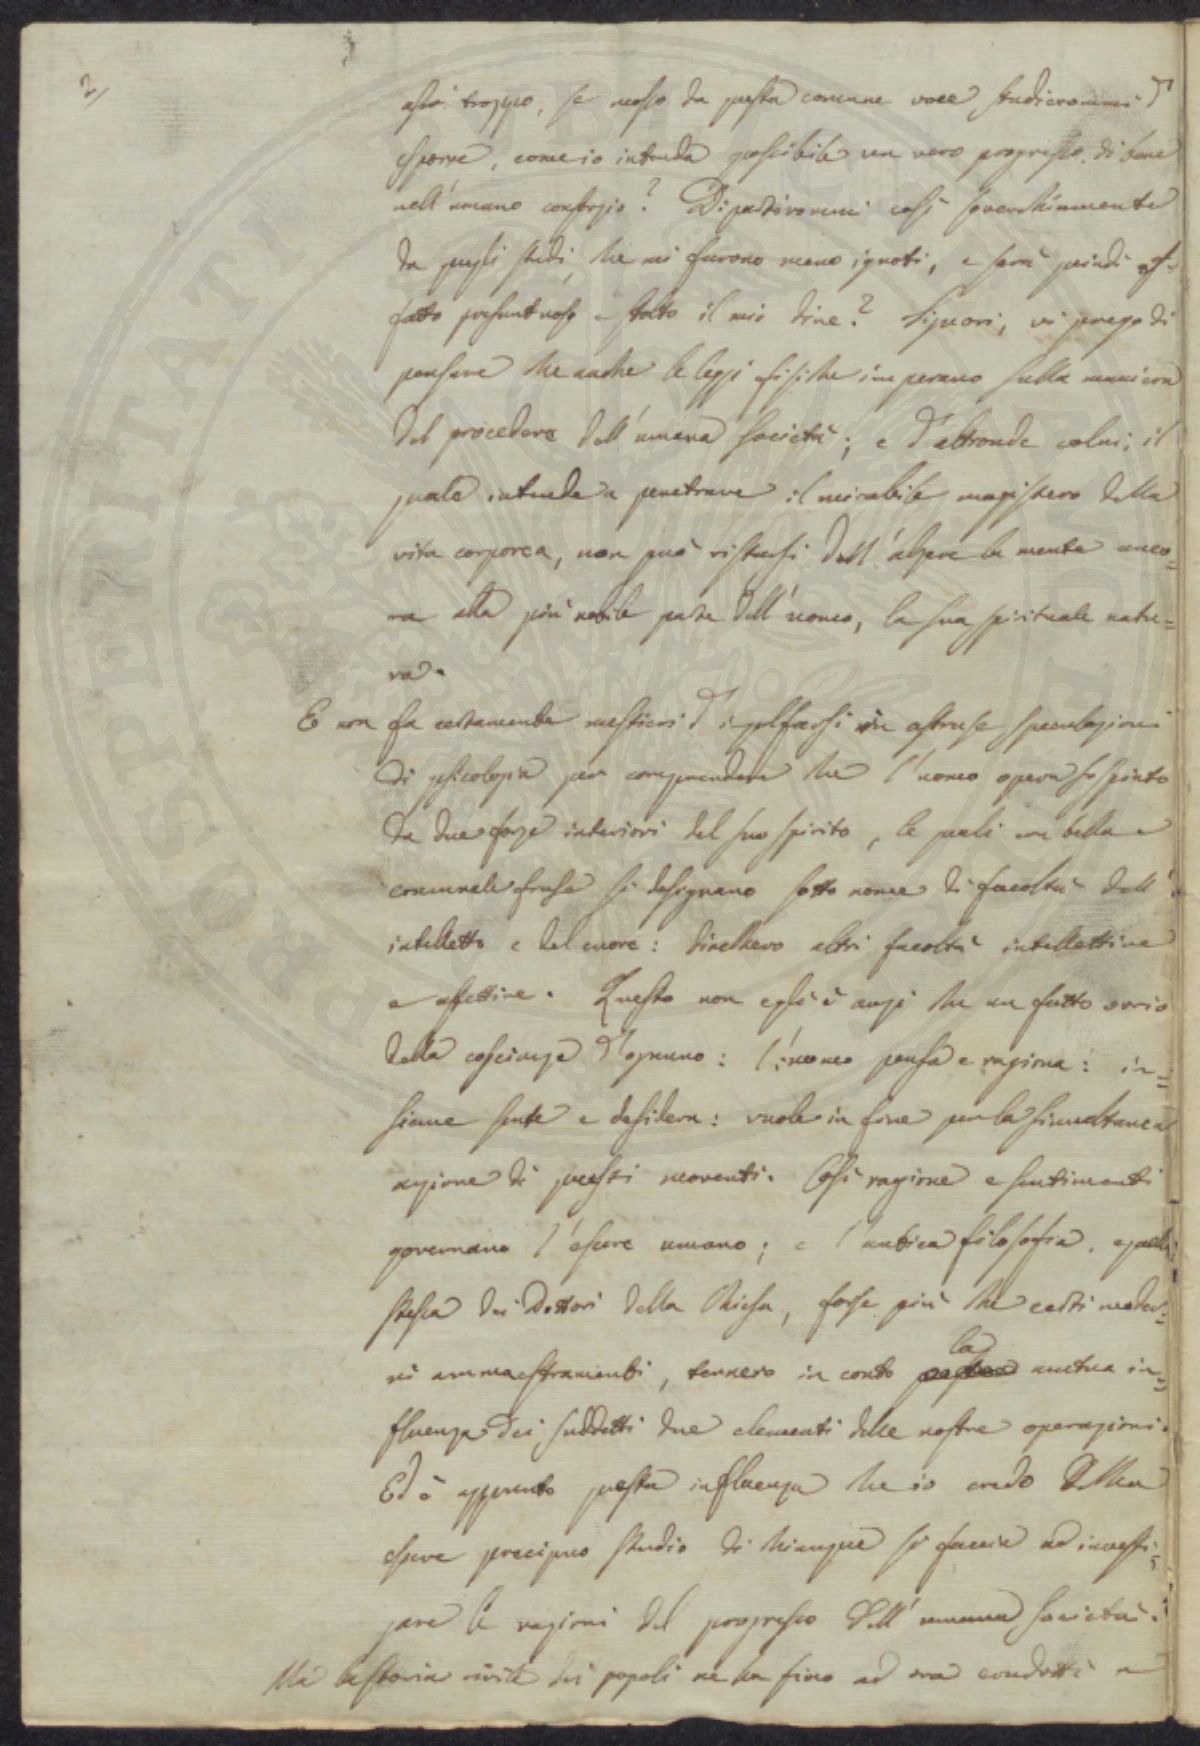 2/
assai troppo, se mosso da questa comune voce studierommi d'
esporre, come io intenda possibile un vero progresso di bene
nell'umano consorzio? Dipartirommi così soverchiamente
da quegli studi, che mi furono meno ignoti, e sarà quindi af-
fatto presuntuoso e stolto il mio dire? Signori, vi prego di
pensare che anche le leggi fisiche imperano sulla maniera
del procedere dell'umana società; e d'altronde colui, il
quale intende a penetrare il mirabile magistero della
vita corporea, non può ristarsi dall'alzare la mente anco=
ra alla più nobile parte dell'uomo, la sua spirituale natu=
ra.
E non fa certamente mestieri d'ingolfarsi in astruse speculazioni
di psicologia per comprendere che l'uomo opera sospinto
da due forze interiori del suo spirito, le quali con bella e
comunale frase si designano sotto nome di facoltà dell'
intelletto e del cuore: direbbero altri facoltà intellettive
e affettive. Questo non egli è anzi che un fatto ovvio
della coscienza d'ognuno: l'uomo pensa e ragiona: in=
sieme sente e desidera: vuole in fine per la simultanea
azione di questi moventi. Così ragione e sentimenti
governano l'essere umano; e l'antica filosofia, e quella
stessa dei Dottori della Chiesa, forse più che certi moder=
ni ammaestramenti, tennero in conto la mutua in=
fluenza dei suddetti due elementi delle nostre operazioni.
Ed è appunto questa influenza che io credo debba
essere precipuo studio di chiunque si faccia ad investi=
gare le ragioni del progresso dell'umana società.
Ma la storia civile dei popoli ne ha fino ad ora condotti a
PROSPERITATI PUBLICAE